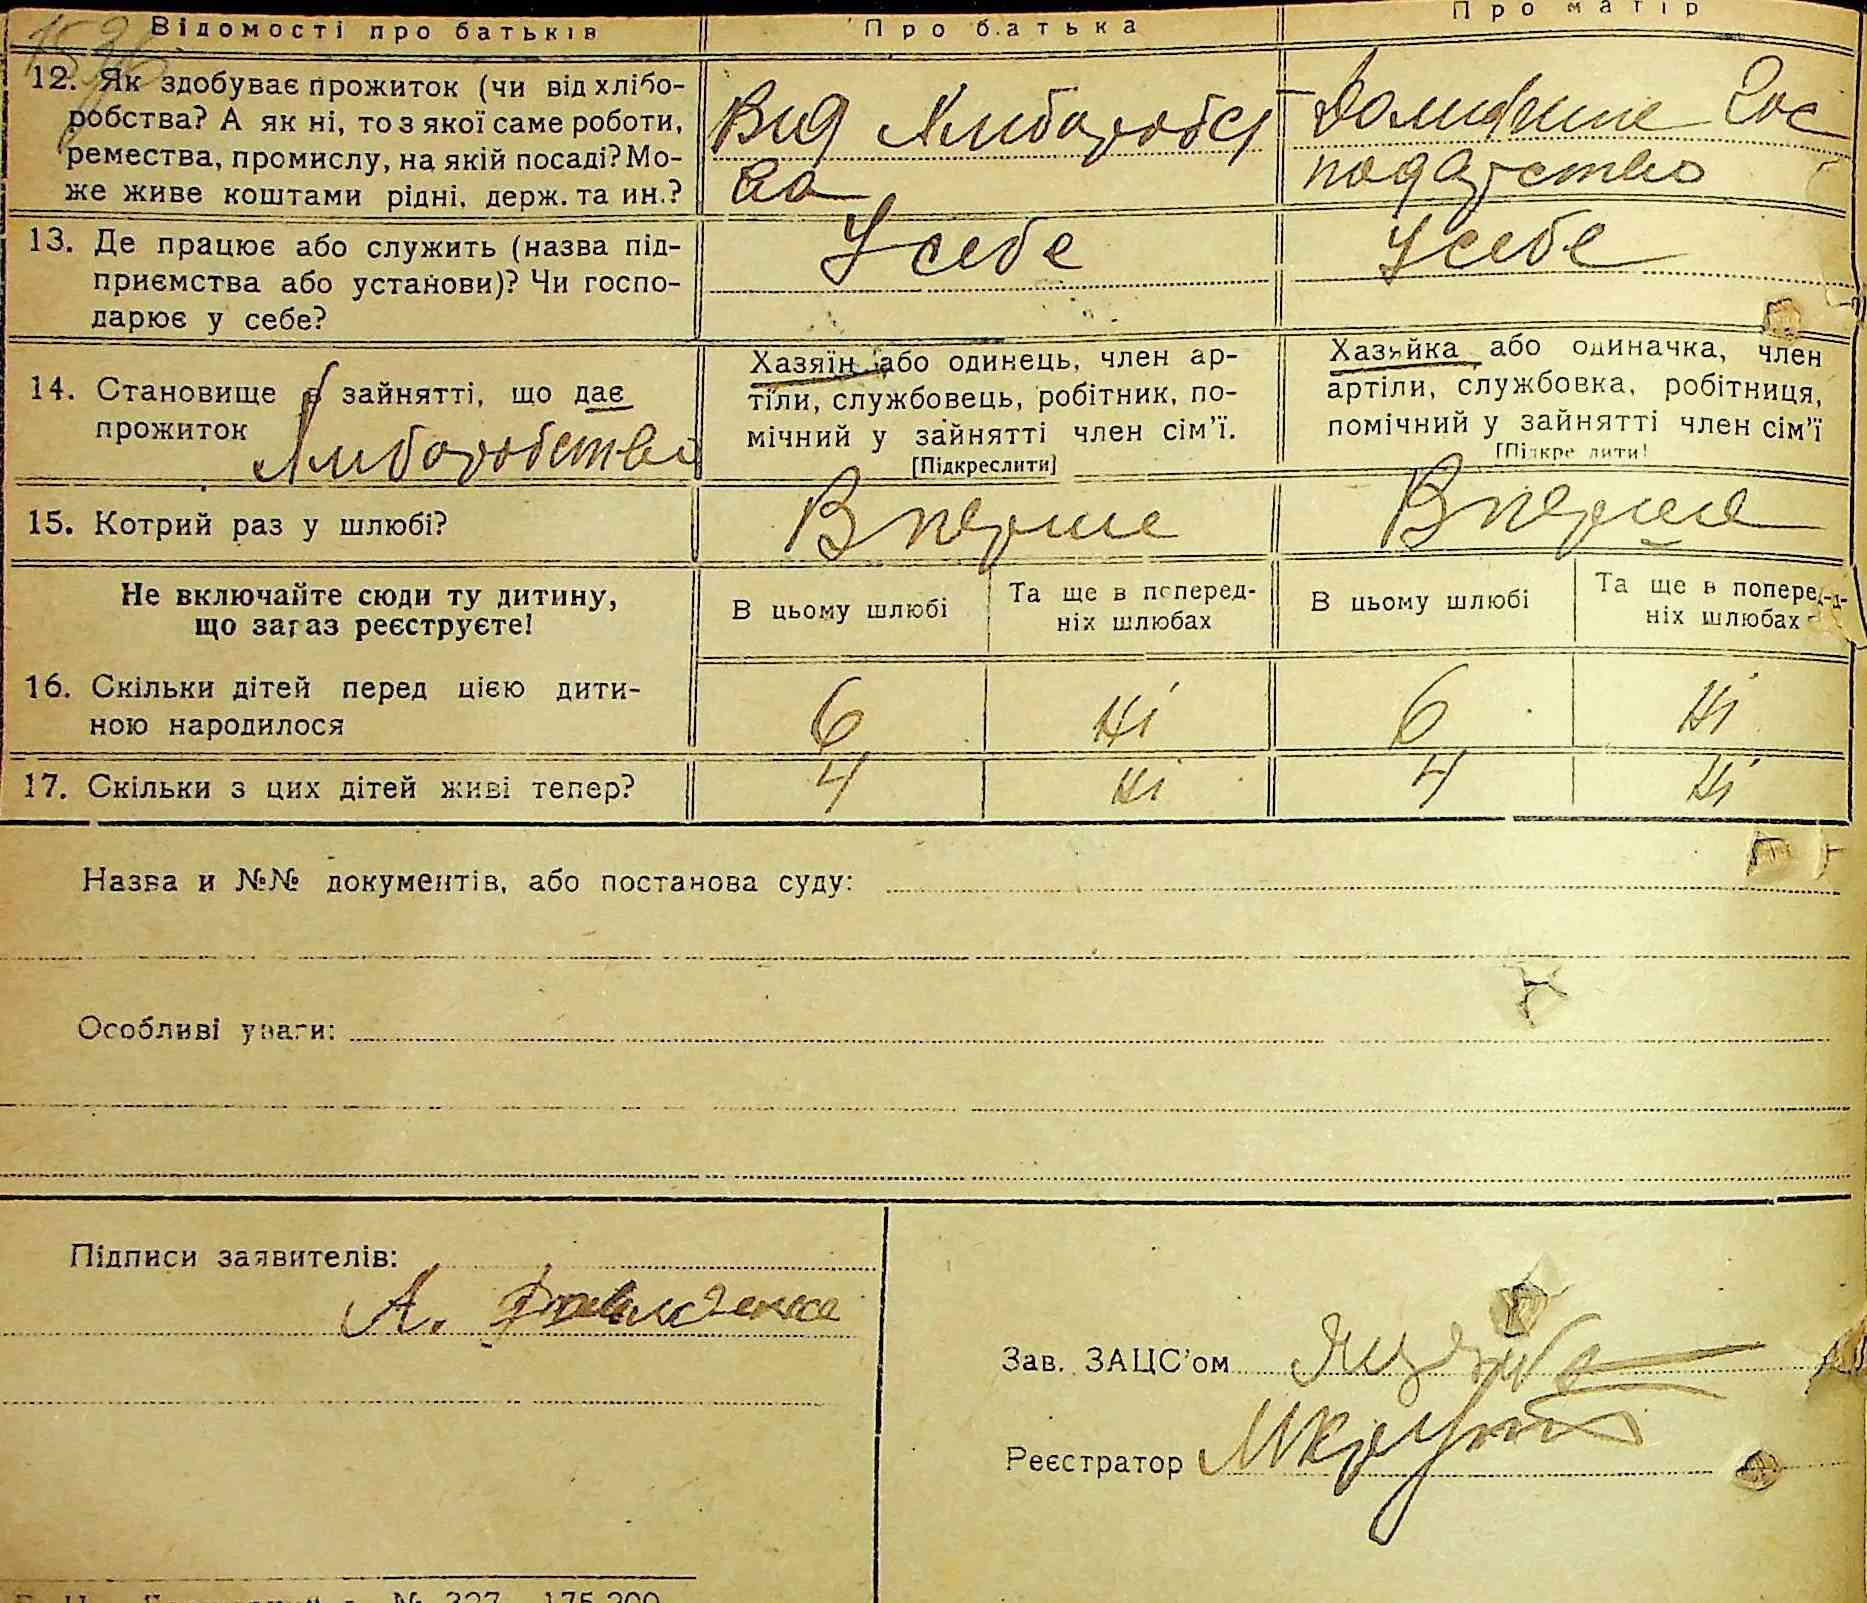 Відомості про батьків
Про батька
Про матір
12. Як здобуває прожиток (чи від хлібо-
робства? А як ні, то з якої саме роботи,
ремества, промислу, на якій посаді? Мо-
же живе коштами рідні, держ. та ин.?
Вид Хлиборобст
ва
Домашне Гос
подарство
13. Де працює або служить (назва під-
приємства або установи)? Чи госпо-
дарює у себе?
У себе
У себе
14. Становище в зайнятті, що дає
прожиток
Хлиборобство
Хазяїн або одинець, член ар-
тіли, службовець, робітник, по-
мічний у зайнятті член сім’ї.
[Підкреслити]
Хазяйка або одиначка, член
артіли, службовка, робітниця,
помічний у зайнятті член сім’ї
[Підкреслити]
15. Котрий раз у шлюбі?
Вперше
Вперше
Не включайте сюди ту дитину,
що зараз реєструєте!
В цьому шлюбі
Та ще в поперед-
ніх шлюбах
В цьому шлюбі
Та ще в поперед-
ніх шлюбах
16. Скільки дітей перед цією дити-
ною народилося
6
Ні
6
Ні
17. Скільки з цих дітей живі тепер?
4
Ні
4
Ні
Назва и №№ документів, або постанова суду:
Особливі уваги:
Підписи заявителів:
А.
Зав. ЗАЦС’ом
Реєстратор
№ 327 175.200